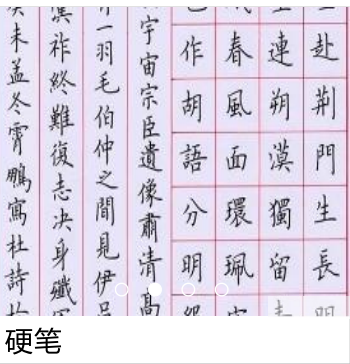 赴荆門生長明
連朔漠獨留
春風面環珮
作胡語分明
宇宙宗臣遺像肅清高
一羽毛伯仲之間見伊吕
祚終難復志决身殲
未孟冬霄鵬寫杜詩於
硬笔